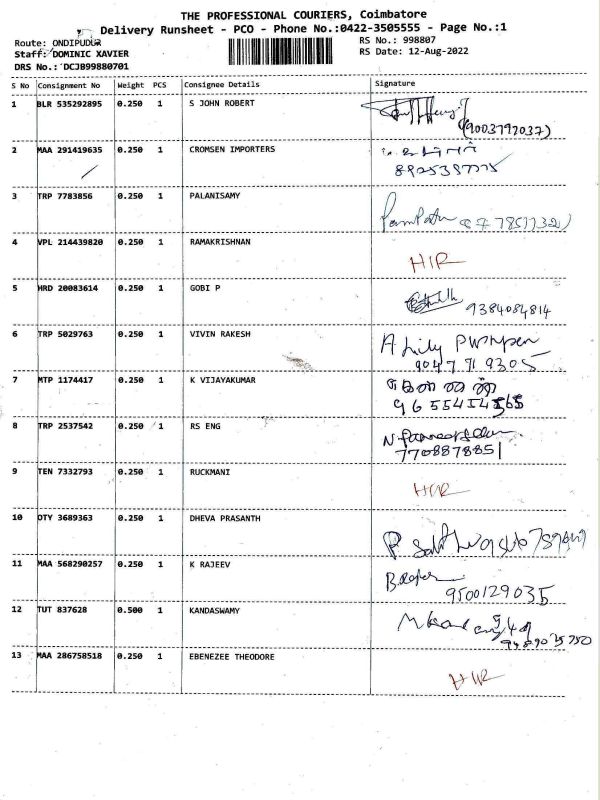 THE PROFESSIONAL COURIERS, Coimbatore
Delivery Runsheet - PCO - Phone No.:0422-3505555 - Page No.:1
Route: ONDIPUDUR
RS No.: 998807
Staff: DOMINIC XAVIER
RS Date: 12-Aug-2022
DRS No.: DCJB99880701
S No Consignment No Weight PCS Consignee Details Signature
1 BLR 535292895 0.250 1 S JOHN ROBERT
(9003797037)
2 MAA 291419635 0.250 1 CROMSEN IMPORTERS
3 TRP 7783856 0.250 1 PALANISAMY
4 VPL 214439820 0.250 1 RAMAKRISHNAN
HIR
5 HRD 20083614 0.250 1 GOBI P
9384084814
6 TRP 5029763 0.250 1 VIVIN RAKESH
A Lily
9047719305
7 MTP 1174417 0.250 1 K VIJAYAKUMAR
8 TRP 2537542 0.250 1 RS ENG
7708878851
9 TEN 7332793 0.250 1 RUCKMANI
HIR
10 OTY 3689363 0.250 1 DHEVA PRASANTH
11 MAA 568290257 0.250 1 K RAJEEV
9500129035
12 TUT 837628 0.500 1 KANDASWAMY
13 MAA 286758518 0.250 1 EBENEZEE THEODORE
HIR